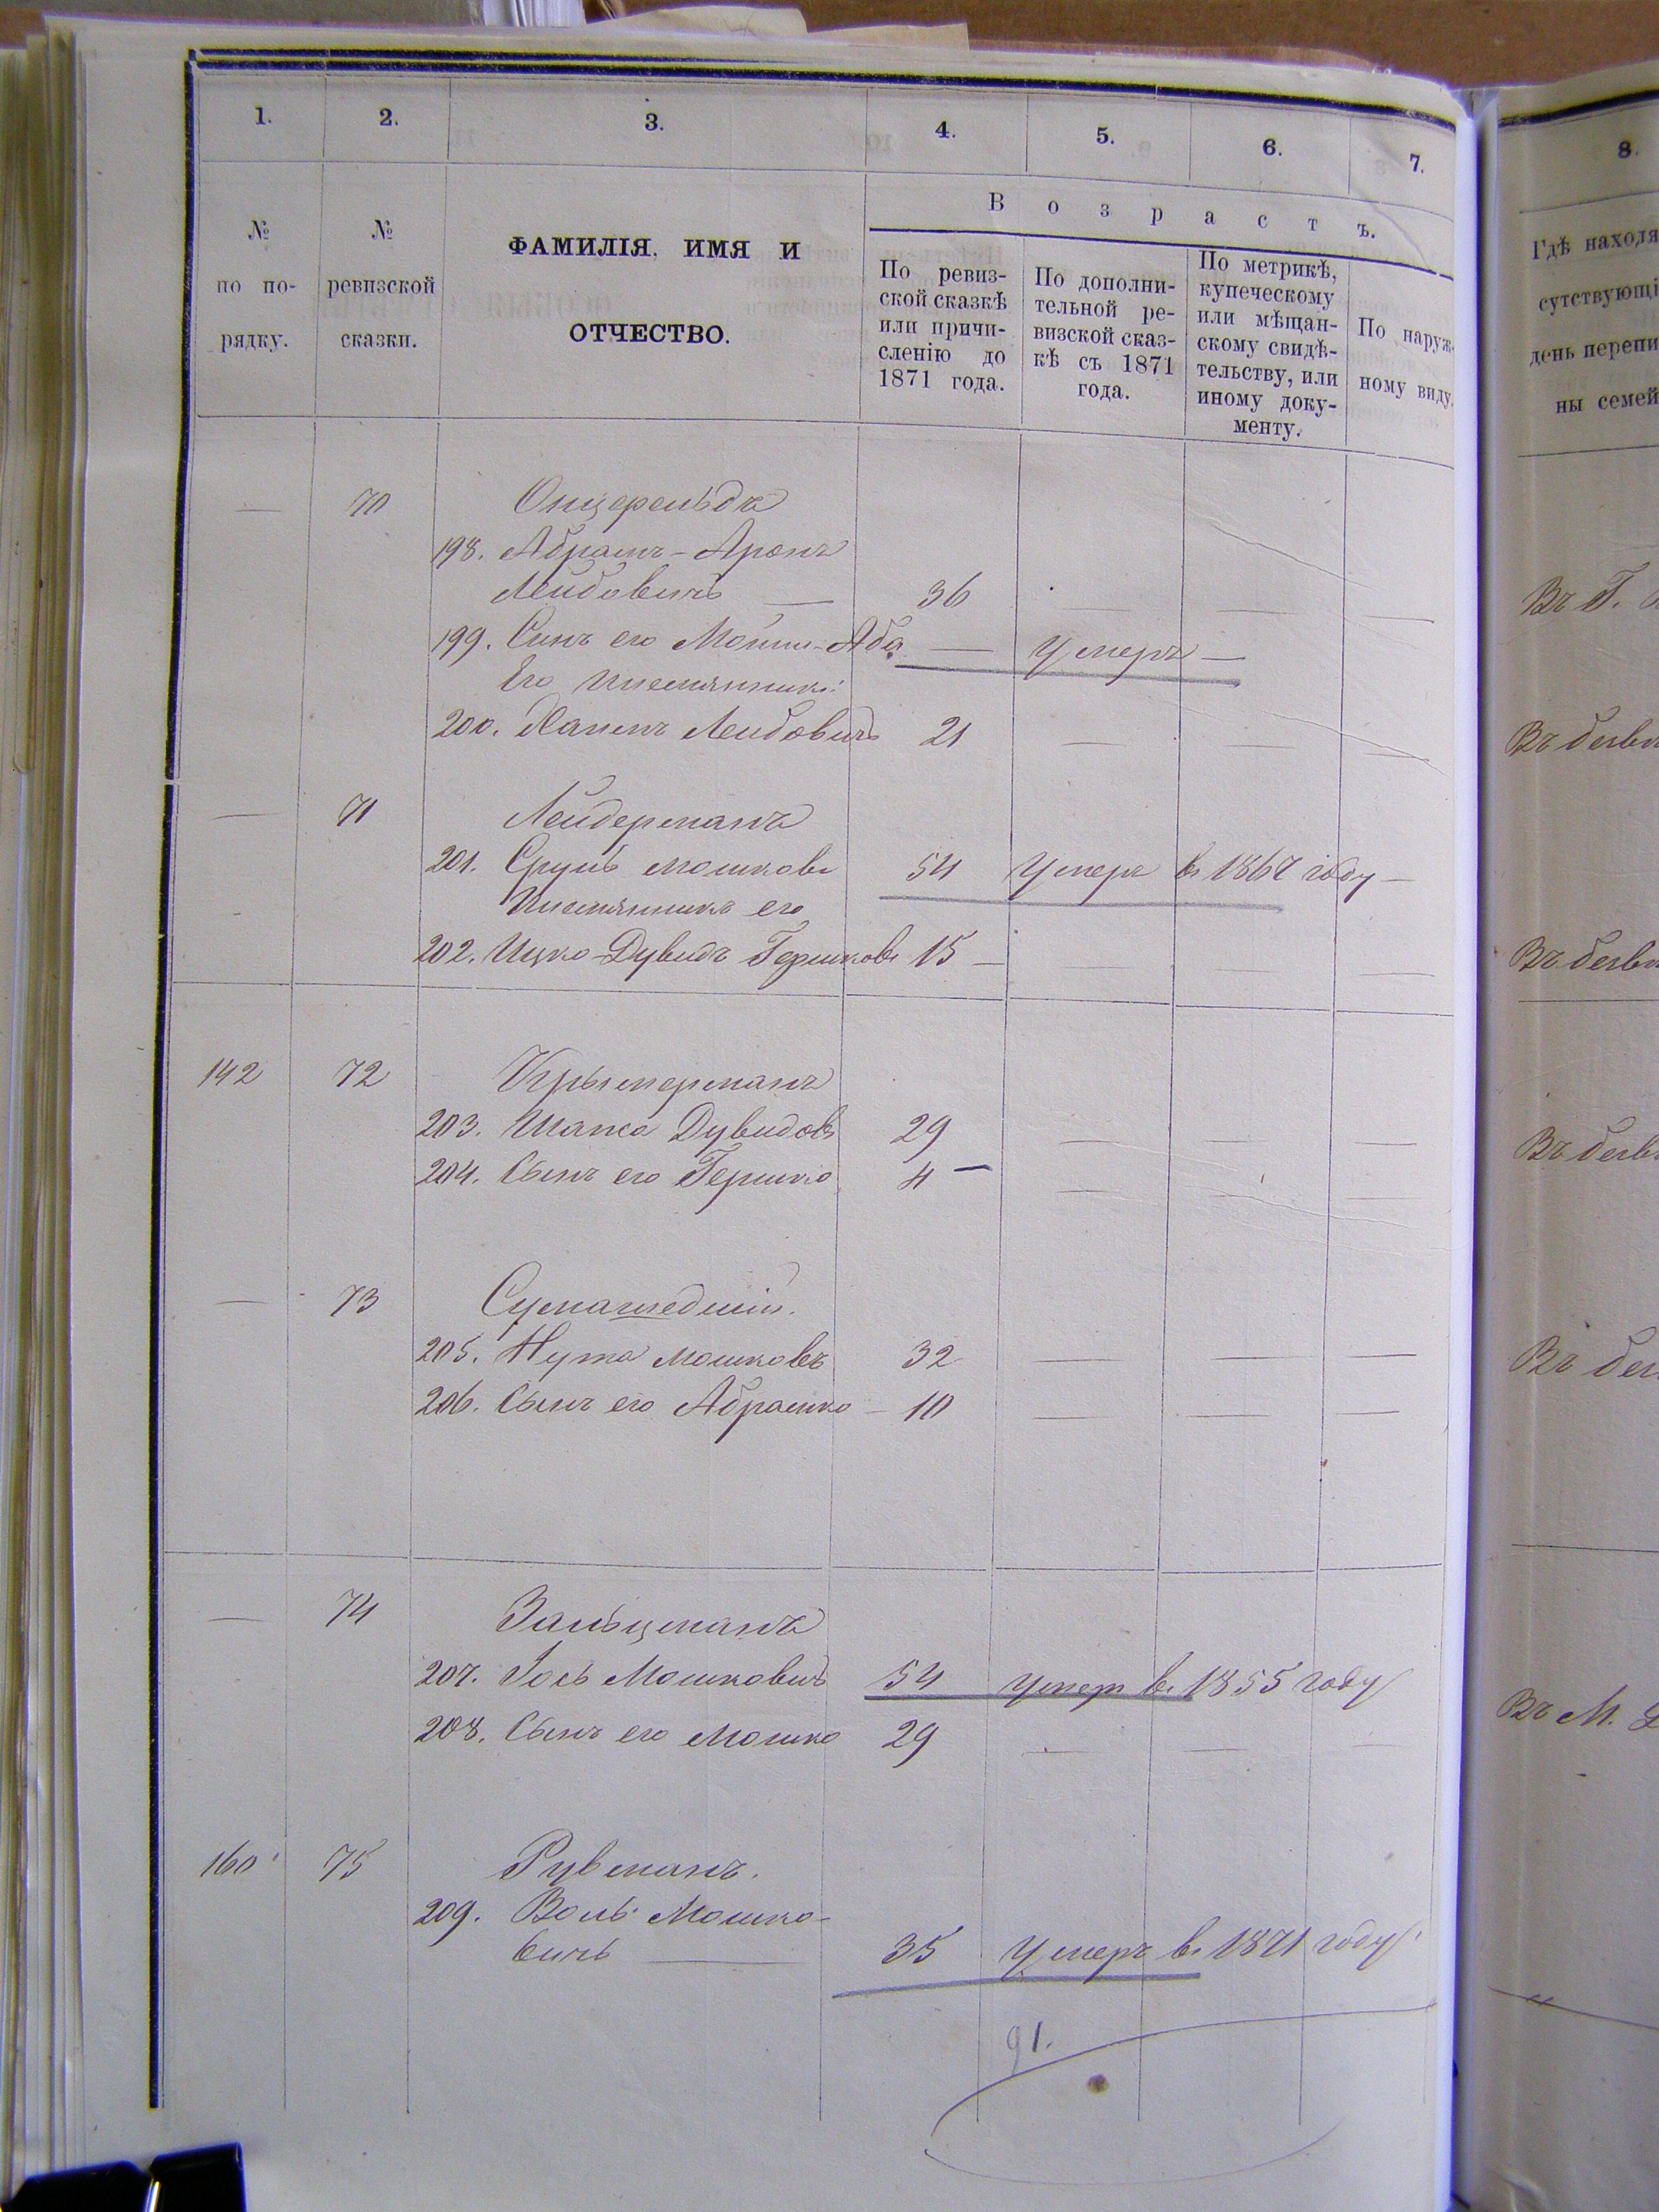 1. 2. 3. 4. 5. 6. 7. 8.
№ по по- рядку.
№ ревизской сказки.
ФАМИЛІЯ, ИМЯ И
ОТЧЕСТВО.
Возрастъ.
По ревиз-
ской сказкѣ
или причи-
сленію до
1871 года.
По дополни-
тельной ре-
визской сказ-
кѣ съ 1871
года.
По метрикѣ,
купеческому
или мѣщан-
скому свидѣ-
тельству, или
иному доку-
менту.
По наруж-
ному виду.
Гдѣ находя
сутствующі
день перепи
ны семей
— 70
198. Абрамъ-Аронъ
Лейбовичъ — 36 — — — Въ Г.
199. Сынъ его Мошко-Аба — Умеръ —
Его племянникъ:
200. Хаимъ Лейбовичъ 21 — — —
— 71 Лейдерманъ
201. Сруль Мошковъ 54 Умеръ въ 1867 году —
Племянникъ его
202. Ицко-Дувидъ Гершковъ 15 —
142 72 Крымерманъ
203. Шапса Дувидовъ 29 — — —
204. Сынъ его Гершко 4 — — — —
— 73 Сумашедшій.
205. Нута Мошковъ 32 — — —
206. Сынъ его Абрамко — 10 — — —
— 74 Зальцманъ
207. Іось Мошковичъ 54 Умеръ въ 1855 году
208. Сынъ его Мошко 29 — — — Въ М.
160 75 Рувманъ.
209. Воль Мошко-
вичъ — 35 Умеръ въ 1871 году
91.